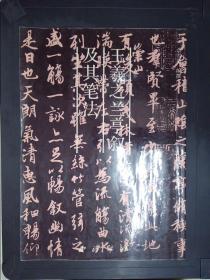 王羲之兰亭叙
及其笔法
于會稽山陰之蘭亭脩稧事
也羣賢畢至少長咸集此地
湍暎帶左右引以為流觴曲水
列坐其次雖無絲竹管弦之
盛一觴一詠亦足以暢叙幽情
是日也天朗氣清惠風和暢仰